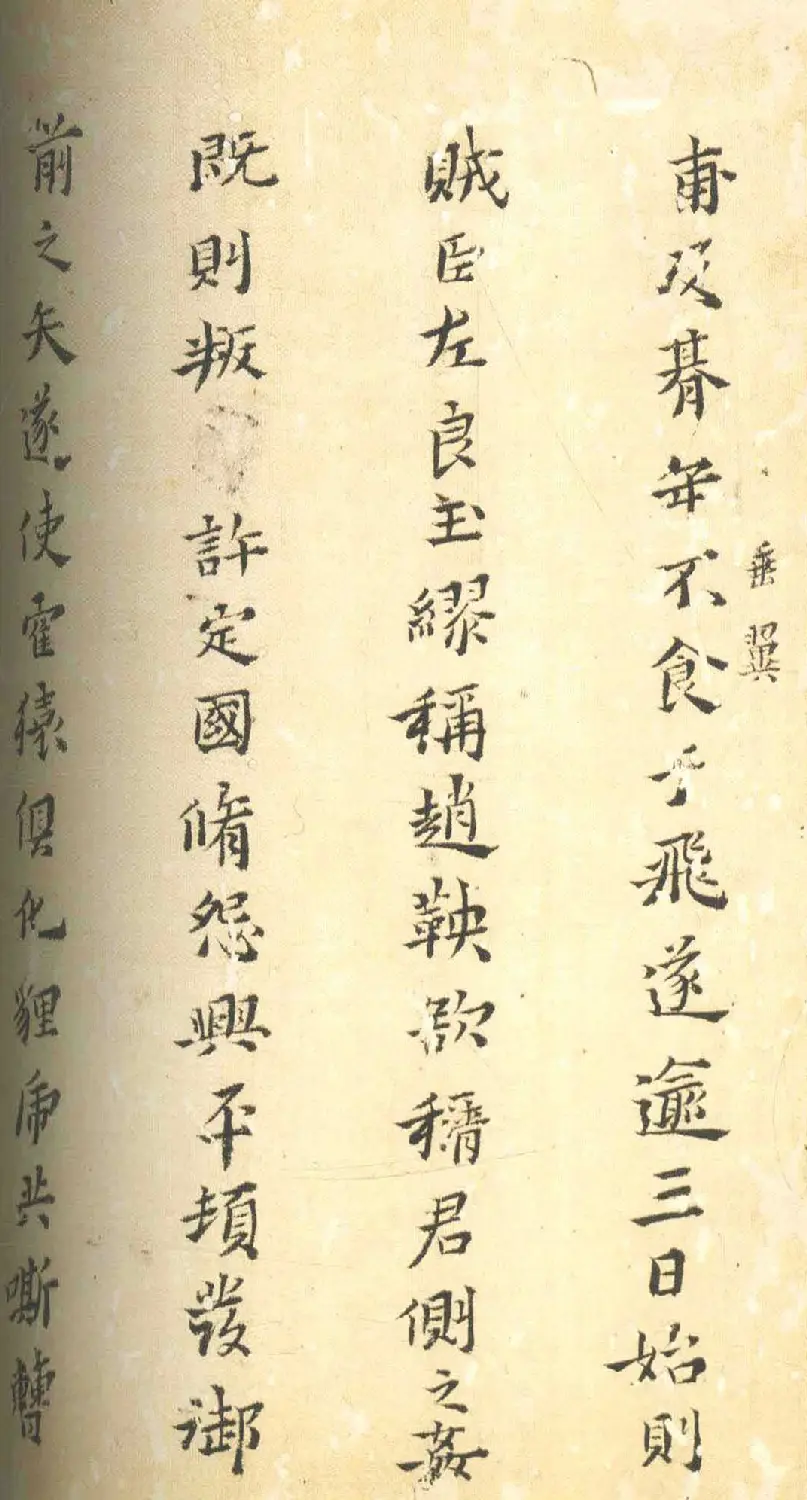 垂翼
甫及朞年不食于飛遂逾三日始則
賊臣左良玉繆稱趙鞅欲清君側之姦
既則叛 許定國脩怨興平頓發御
前之矢遂使霍猿俱化貍虎共嘶